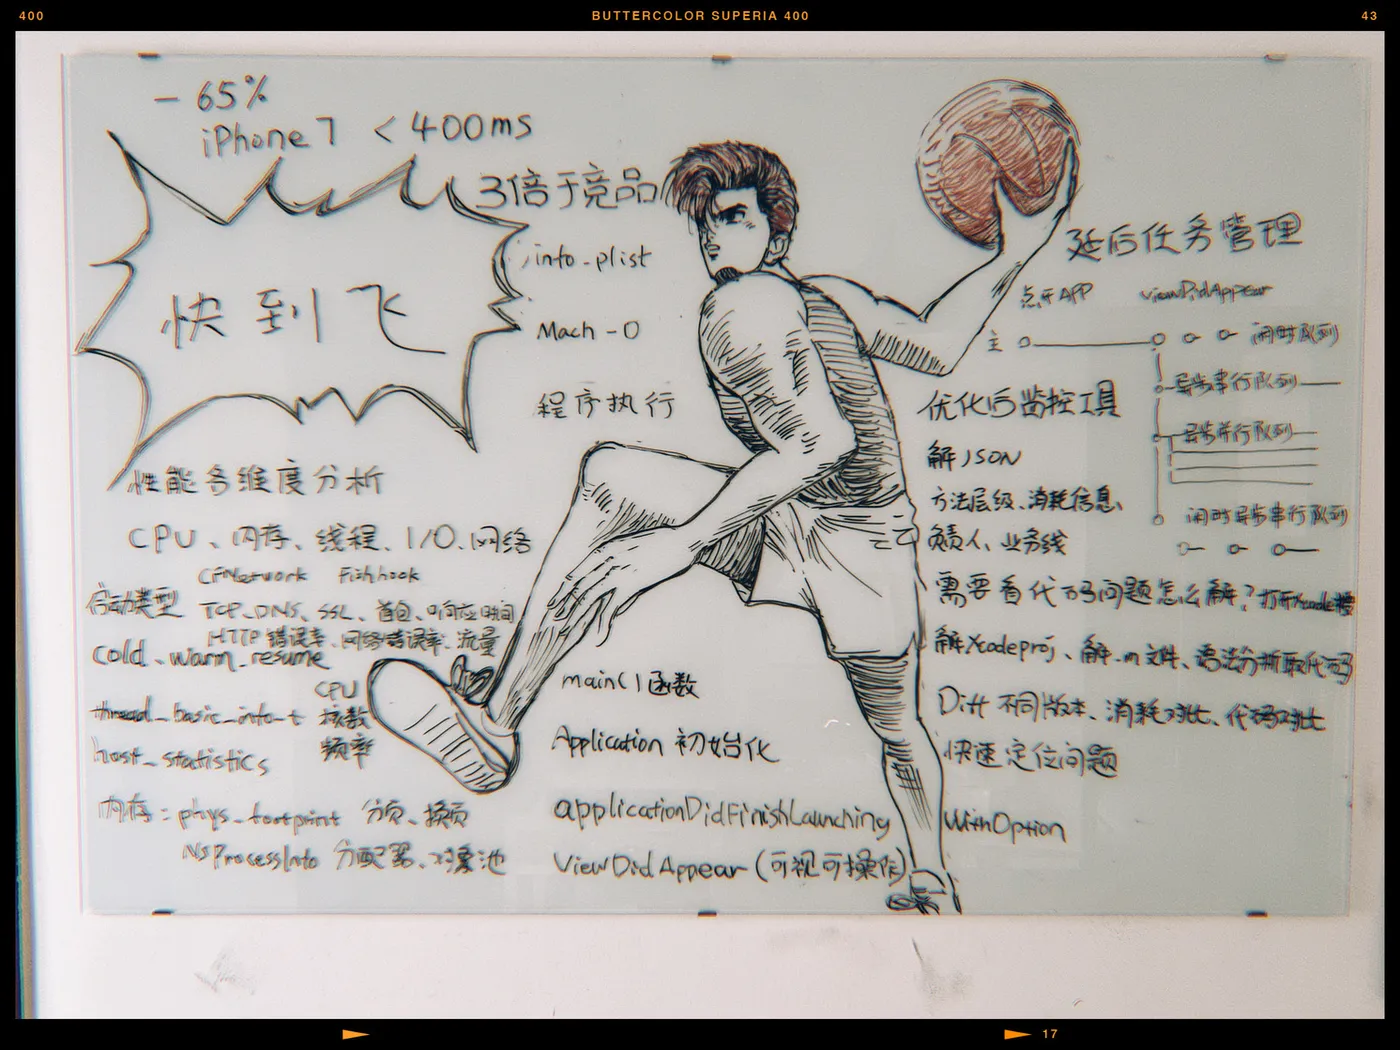 400
BUTTERCOLOR SUPERIA 400
43
- 65%
iPhone7 < 400ms
3倍于竞品
快到飞
info.plist
Mach-O
程序执行
性能多维度分析
CPU、内存、线程、I/O、网络
CFNetwork Fishhook
启动类型 TCP、DNS、SSL、首包、响应时间
HTTP错误率、网络错误率、流量
cold、warm、resume
CPU
thread_basic_info_t 核数
host_statistics 频率
内存：phys_footprint 分页、换页
NSProcessInfo 分配器、对象池
main()函数
Application 初始化
applicationDidFinishLaunching WithOption
ViewDidAppear (可视可操作)
延后任务管理
点开APP viewDidAppear
主 闲时队列
异步串行队列
异步并行队列
闲时异步串行队列
优化后监控工具
解JSON
方法层级、消耗信息、
负责人、业务线
需要看代码问题怎么解？打开Xcode搜
解Xcodeproj、解.m文件、语法分析取代码
Diff 不同版本、消耗对比、代码对比
快速定位问题
17